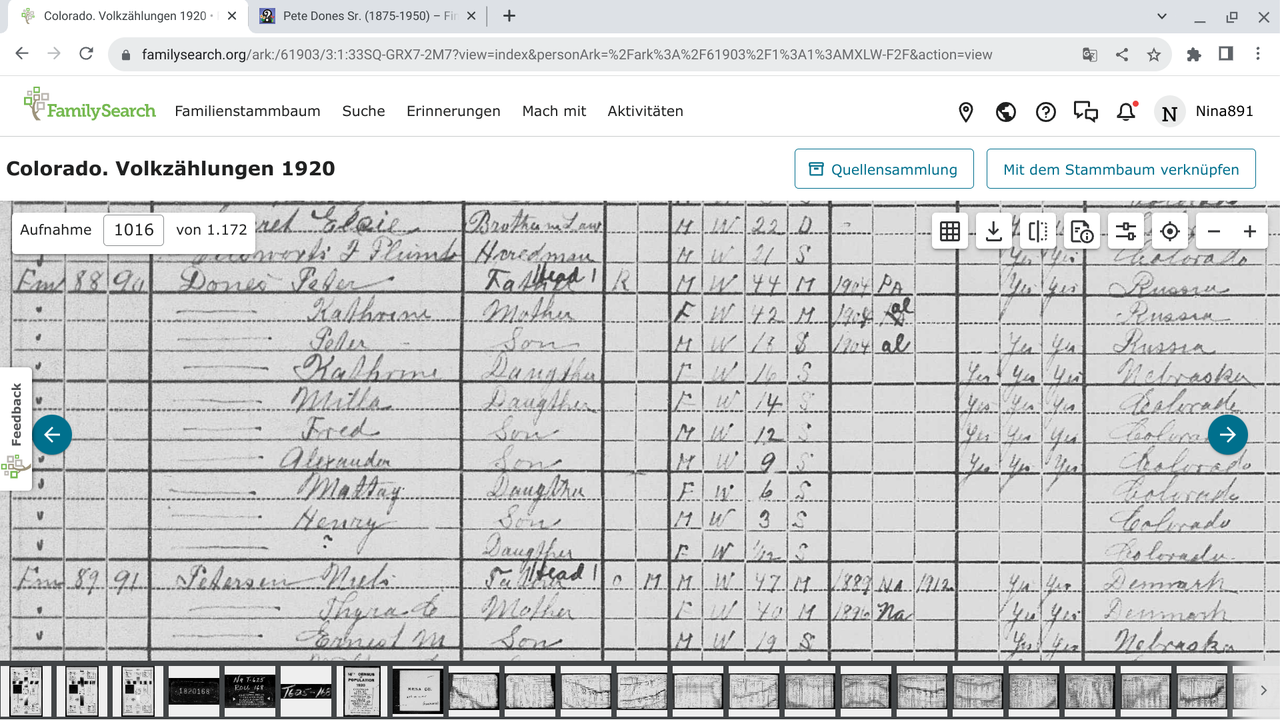 Colorado. Volkzählungen 1920 •
Pete Dones Sr. (1875-1950) – Fi
familysearch.org/ark:/61903/3:1:33SQ-GRX7-2M7?view=index&personArk=%2Fark%3A%2F61903%2F1%3A1%3AMXLW-F2F&action=view
FamilySearch Familienstammbaum Suche Erinnerungen Mach mit Aktivitäten N Nina891
Colorado. Volkzählungen 1920 Quellensammlung Mit dem Stammbaum verknüpfen
Aufnahme 1016 von 1.172
Elsie Brother in Law M W 22 D
Hiredman M W 21 S Yes Yes Colorado
Fm 88 90 Dones Peter Father Head 1 R M W 44 M 1904 PA Yes Yes Russia
Kathrine Mother F W 42 M 1904 al Russia
Peter Son M W 18 S 1904 al Yes Yes Russia
Kathrine Daugther F W 16 S Yes Yes Yes Nebraska
Milla Daugther F W 14 S Yes Yes Yes Colorado
Fred Son M W 12 S Yes Yes Yes Colorado
Alexander Son M W 9 S Yes Yes Yes Colorado
Daugther F W 6 S Colorado
Henry Son M W 3 S Colorado
? Daugther F W S Colorado
Fm 89 91 Petersen Niels Father Head 1 O M M W 47 M 1889 Na 1912 Yes Yes Denmark
Thyra E Mother F W 40 M Na Yes Yes Denmark
Ernest M Son M W 19 S Yes Yes Nebraska
Feedback
1820168
T625-168